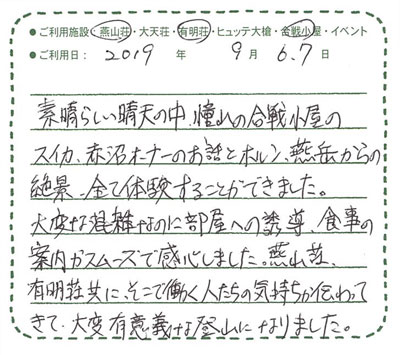 ●ご利用施設：燕山荘・大天荘・有明荘・ヒュッテ大槍・合戦小屋・イベント
●ご利用日： 2019 年 9 月 6.7 日
素晴らしい晴天の中、憧れの合戦小屋の
スイカ、赤沼オーナーのお話とホルン、燕岳からの
絶景、全て体験することができました。
大変な混雑なのに部屋への誘導、食事の
案内がスムーズで感心しました。燕山荘、
有明荘共に、そこで働く人たちの気持ちが伝わって
きて、大変有意義な登山になりました。